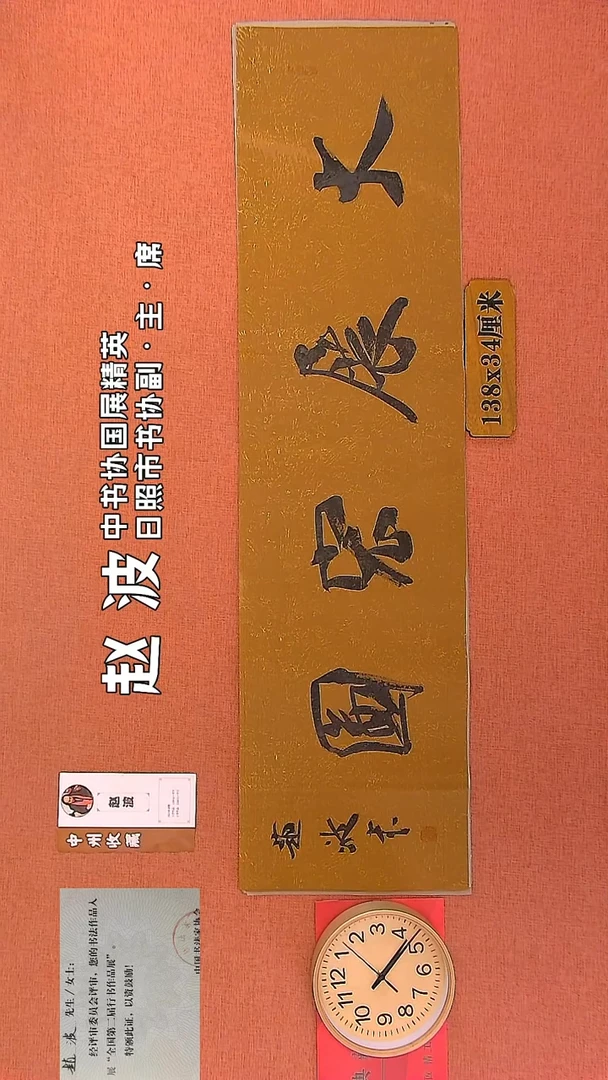 赵 波
中书协国展精英
日照市书协副·主·席
大展宏圖
138x34厘米
赵波
中州收藏
赵波 先生/女士:
经评审委员会评审，您的书法作品入
展“全国第二届行书作品展”。
特颁此证，以资鼓励!
中国书法家协会
12
1
2
3
4
5
6
7
8
9
10
11